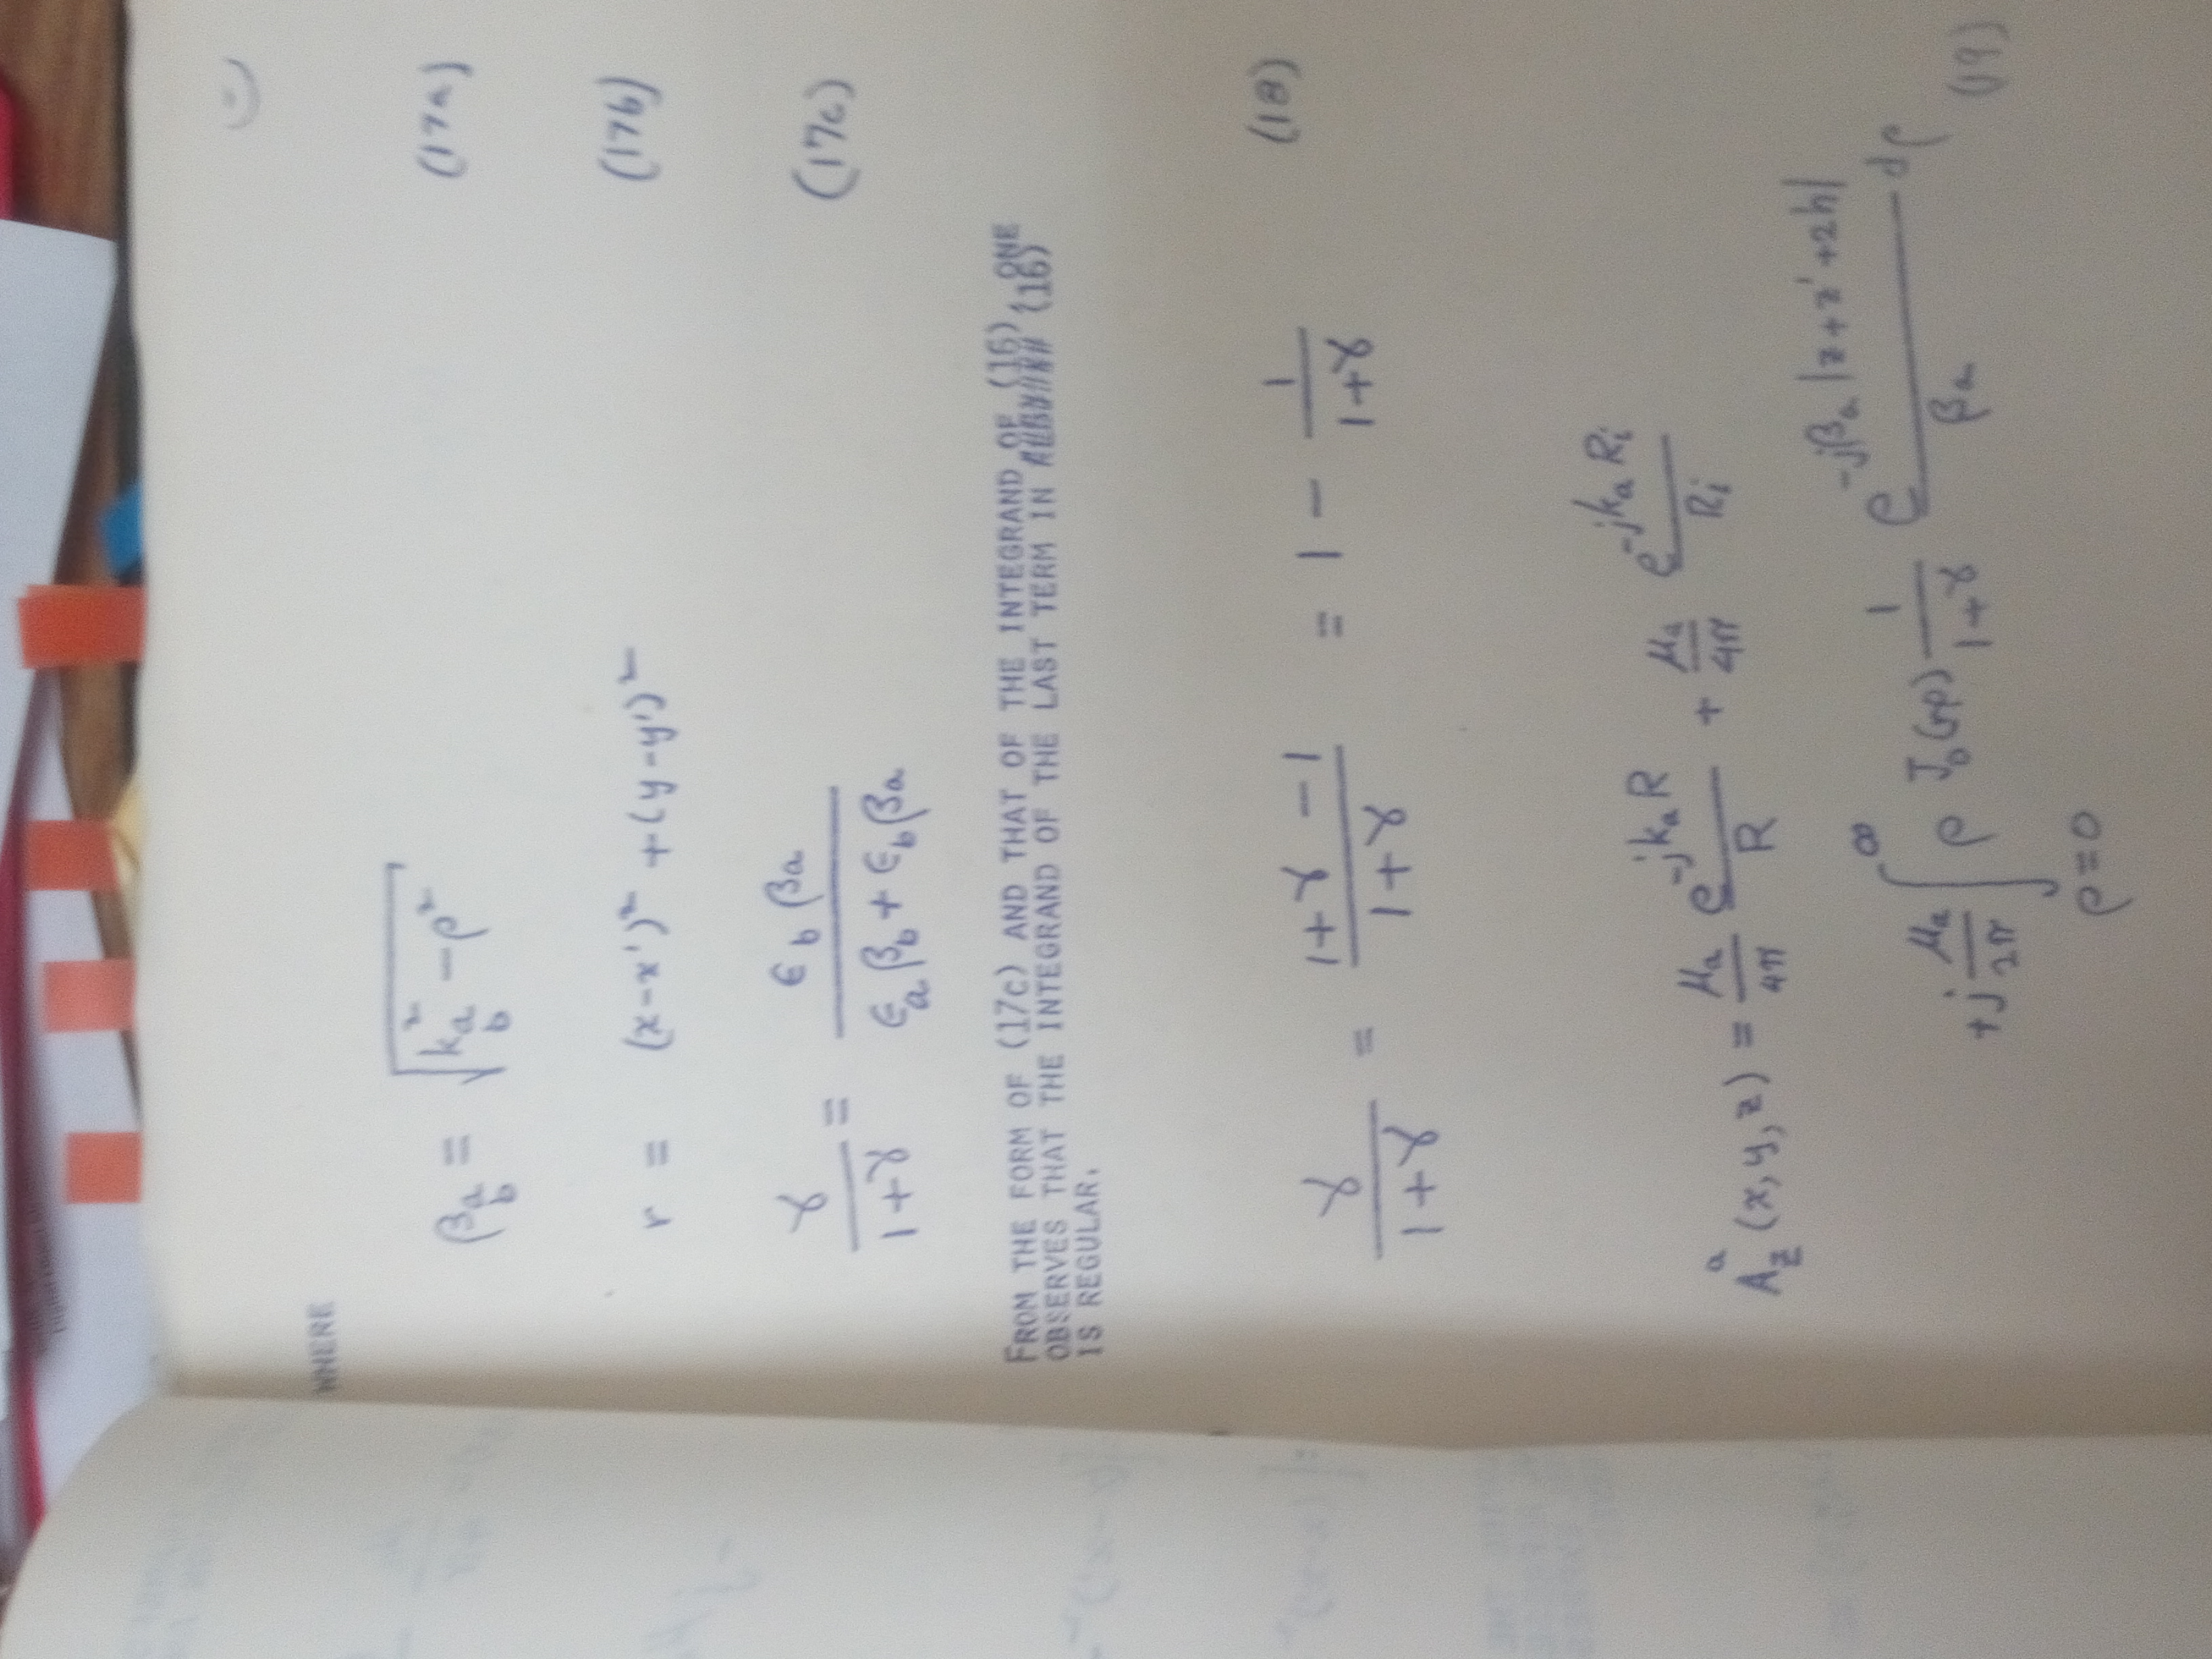 WHERE
β_{a/b} = √(k²_{a/b} − ρ²) (17a)
r = (x−x')² + (y−y')² (17b)
γ/(1+γ) = ϵ_b β_a/(ϵ_a β_b + ϵ_b β_a) (17c)
FROM THE FORM OF (17C) AND THAT OF THE INTEGRAND OF (16), ONE
OBSERVES THAT THE INTEGRAND OF THE LAST TERM IN (16)
IS REGULAR.
γ/(1+γ) = (1+γ −1)/(1+γ) = 1 − 1/(1+γ) (18)
A_z^a (x,y,z) = μ_a/4π e^{-jk_a R}/R + μ_a/4π e^{-jk_a R_i}/R_i
+j μ_a/2π ∫_{ρ=0}^{∞} ρ J_0(rρ) 1/(1+γ) e^{-jβ_a |z+z'+2h|}/β_a dρ (19)